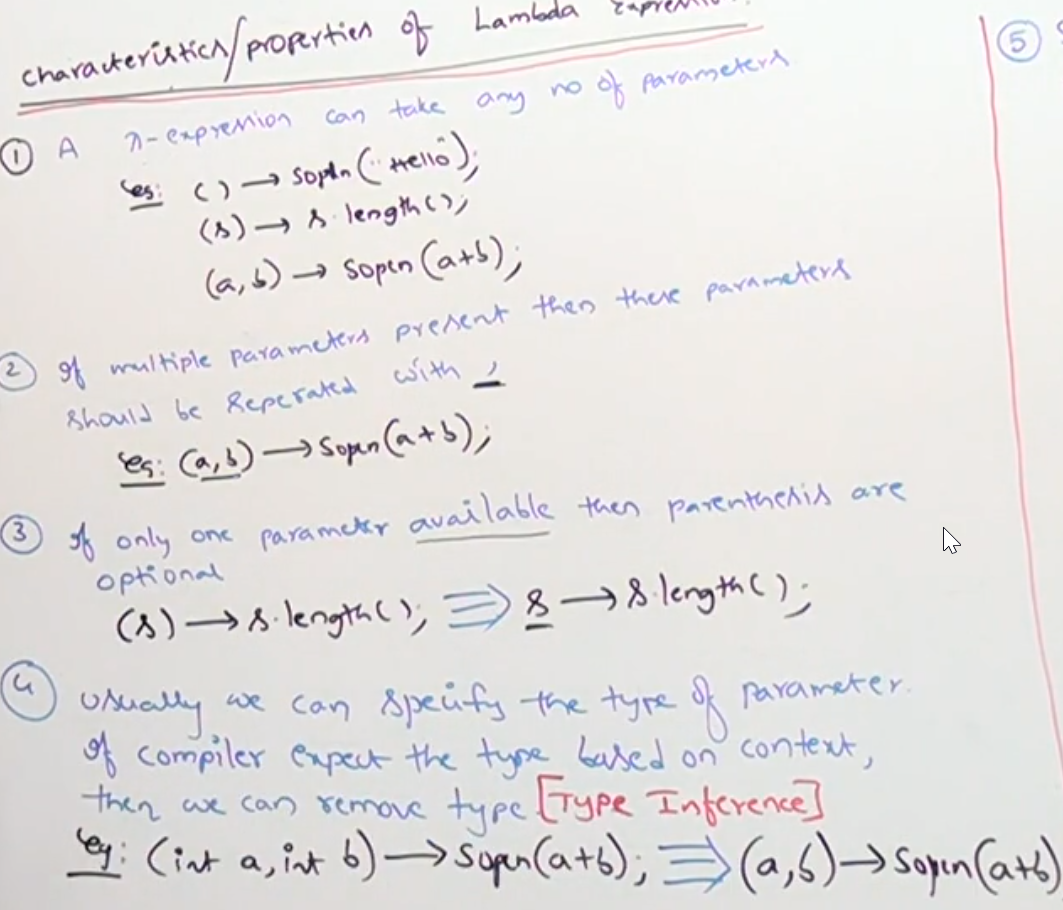 characteristics/properties of Lambda Expressio
① A λ-expression can take any no of parameters
eg: () → Sopln("Hello");
(s) → s.length();
(a, b) → Sopln(a+b);
② If multiple parameters present then these parameters
should be seperated with ,
eg: (a, b) → Sopln(a+b);
③ If only one parameter available then parenthesis are
optional
(s) → s.length(); ≡> s → s.length();
④ usually we can specify the type of parameter.
If compiler expect the type based on context,
then we can remove type [Type Inference]
eg: (int a, int b) → Sopln(a+b); ≡> (a, b) → Sopln(a+b)
⑤